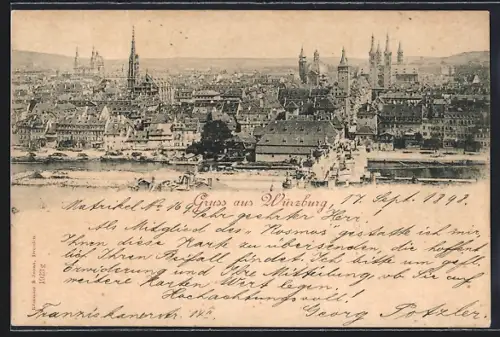 Gruss aus Würzburg
17. Sept. 1898.
Matrikel No 16
Sehr geehrter Herr.
Als Mitglied des "Kosmos" gestatte ich mir,
Ihnen diese Karte zu übersenden, die hoffent
lich Ihren Beifall findet. Ich bitte um gefl.
Erwiderung und Ihre Mitteilung, ob Sie auf
weitere Karten Wert legen.
Hochachtungsvoll!
Franziskanerstr.
Georg Potzler.